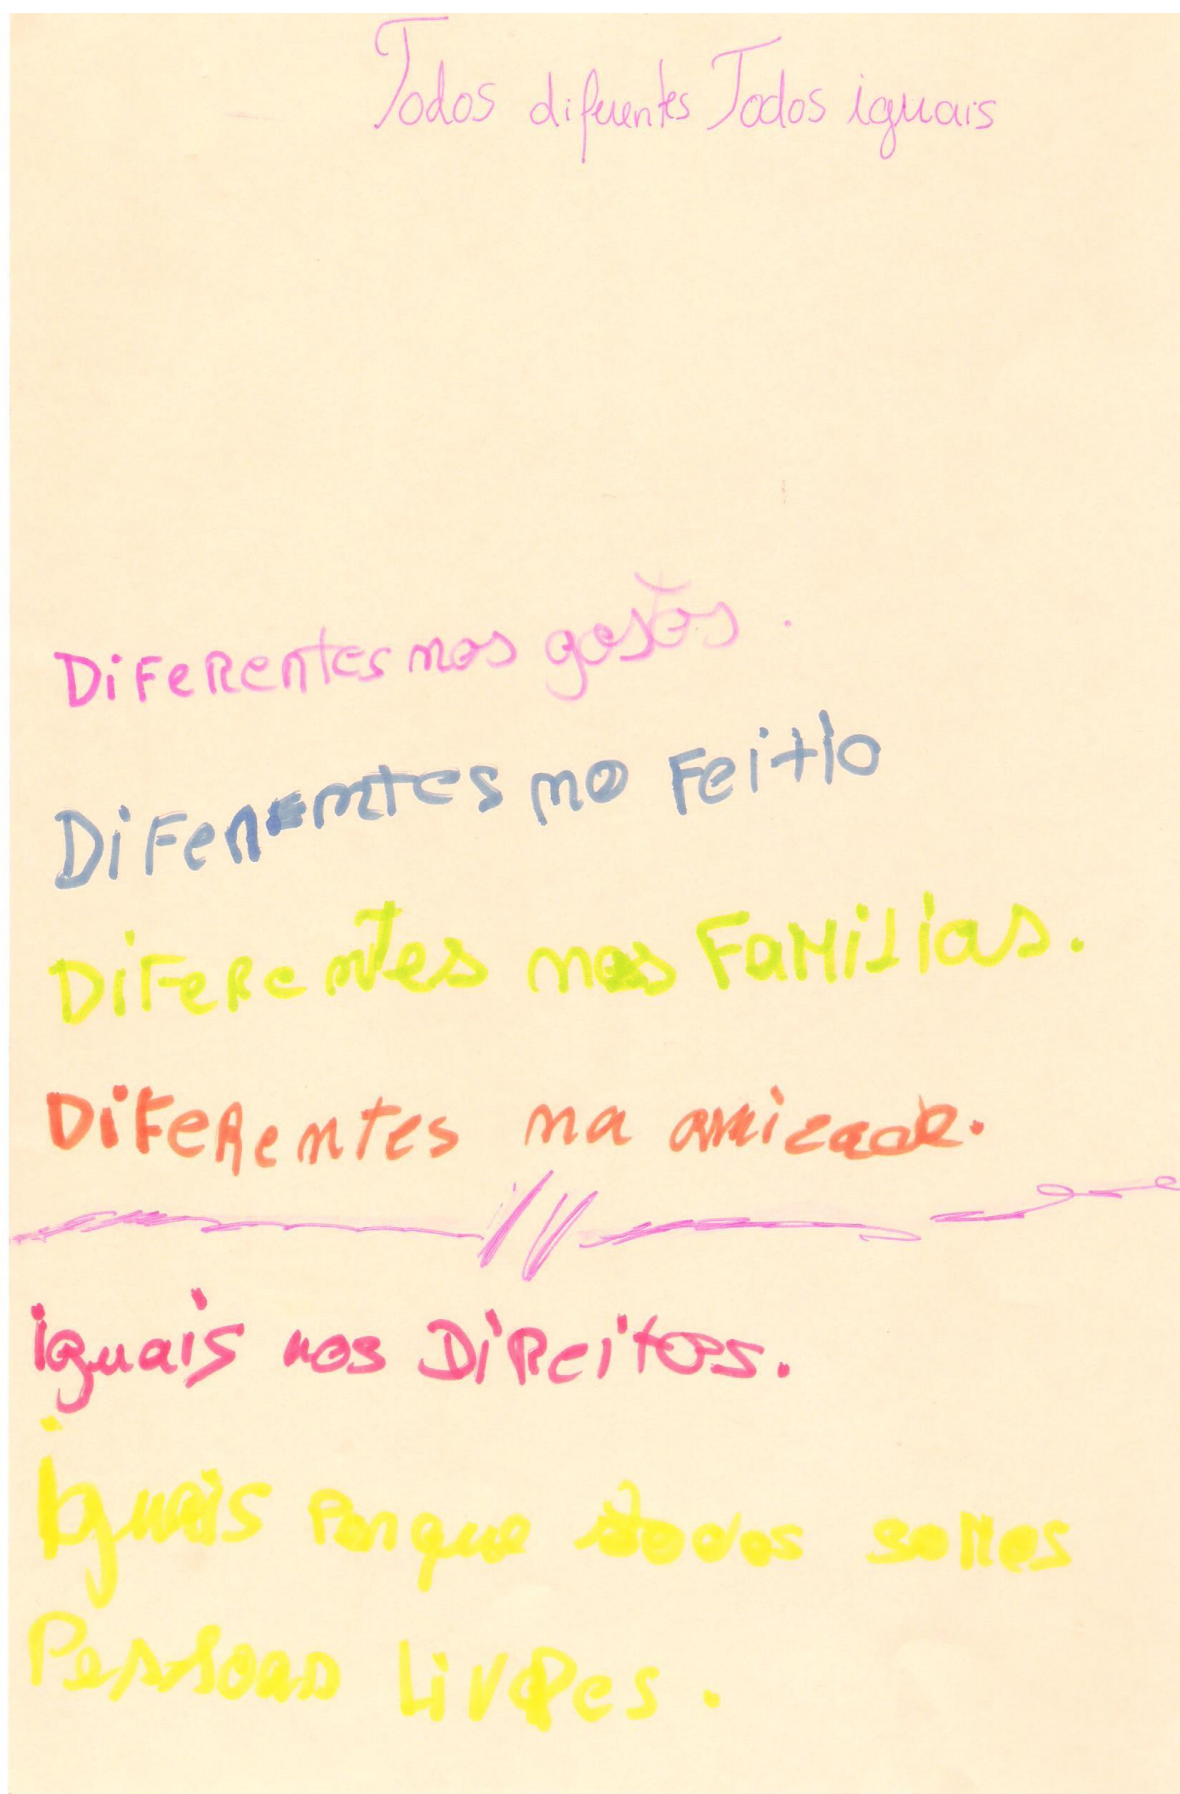 Todos diferentes Todos iguais
DiFeRentes nos gostos.
DiFerentes no Feitio
DiFeRentes nas FaMilias.
DiFeRentes na amizade.
iguais nos DiReitos.
iguais Porque todos soMos
Pessoas LivRes.